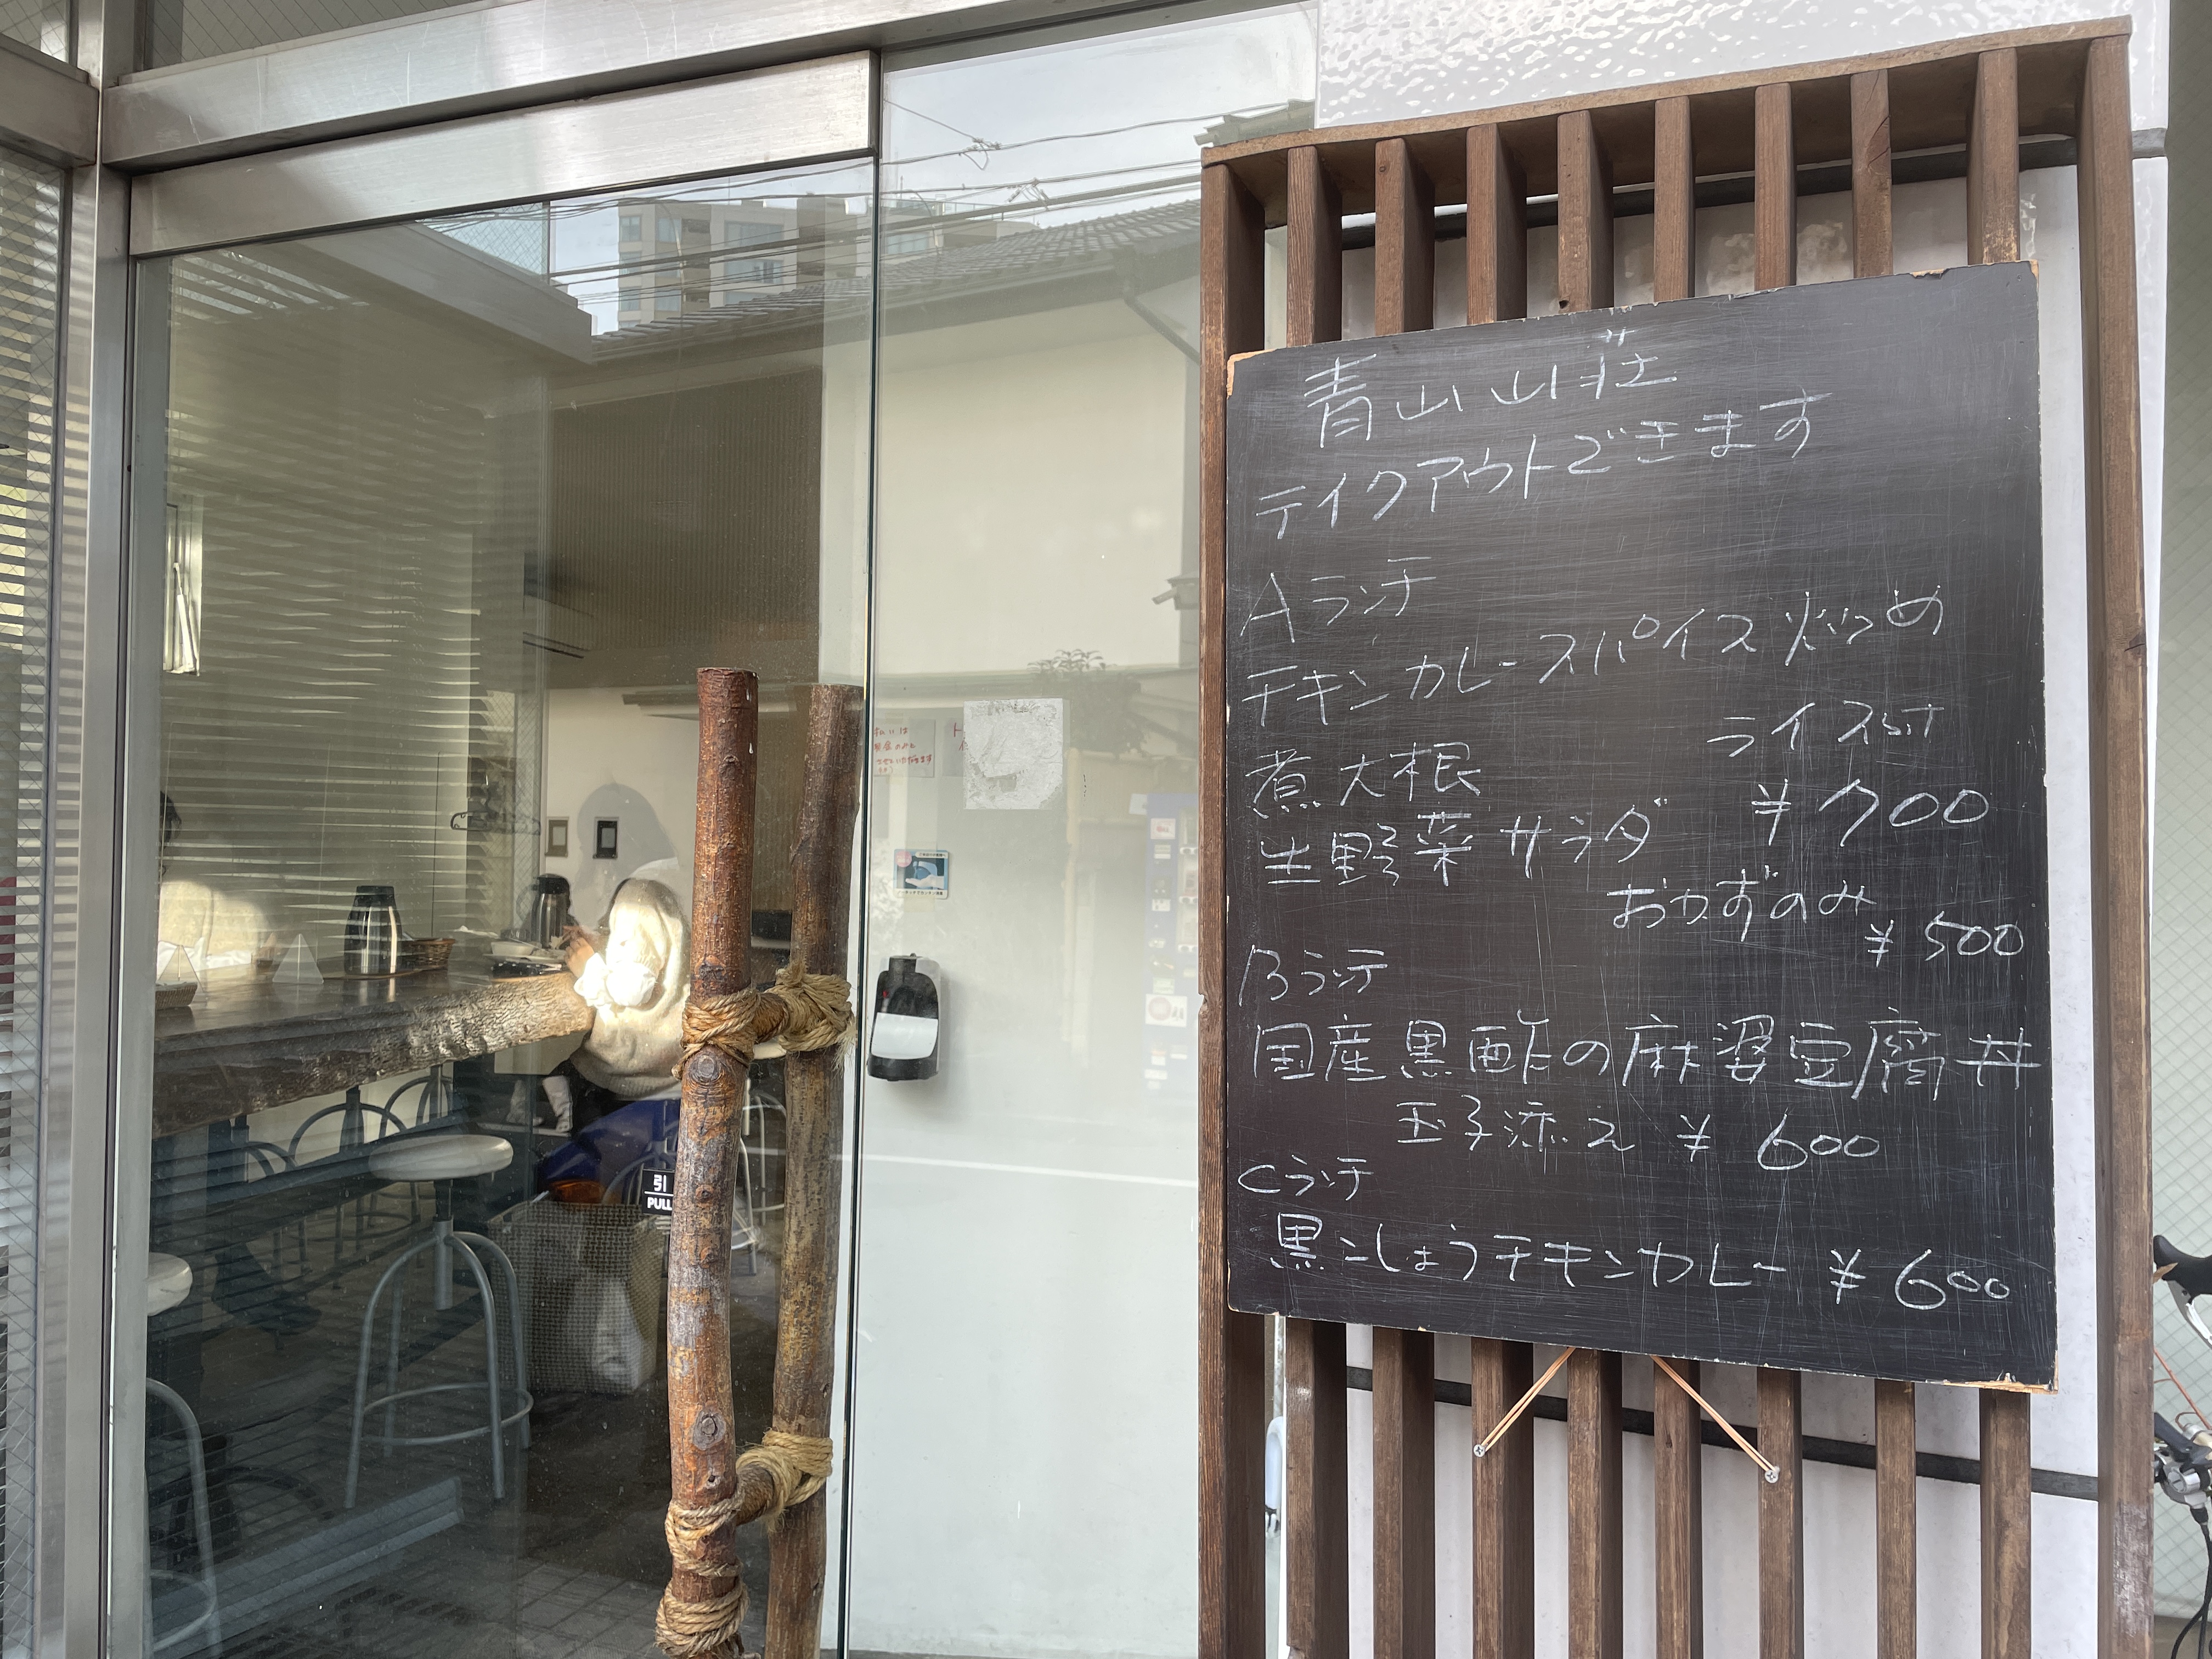 青山山荘
テイクアウトできます
Aランチ
チキンカレースパイス炒め
ライスset
煮大根
¥700
生野菜サラダ
おかずのみ
¥500
Bランチ
国産黒酢の麻婆豆腐丼
玉子添え ¥600
Cランチ
黒こしょうチキンカレー ¥600
引
PULL